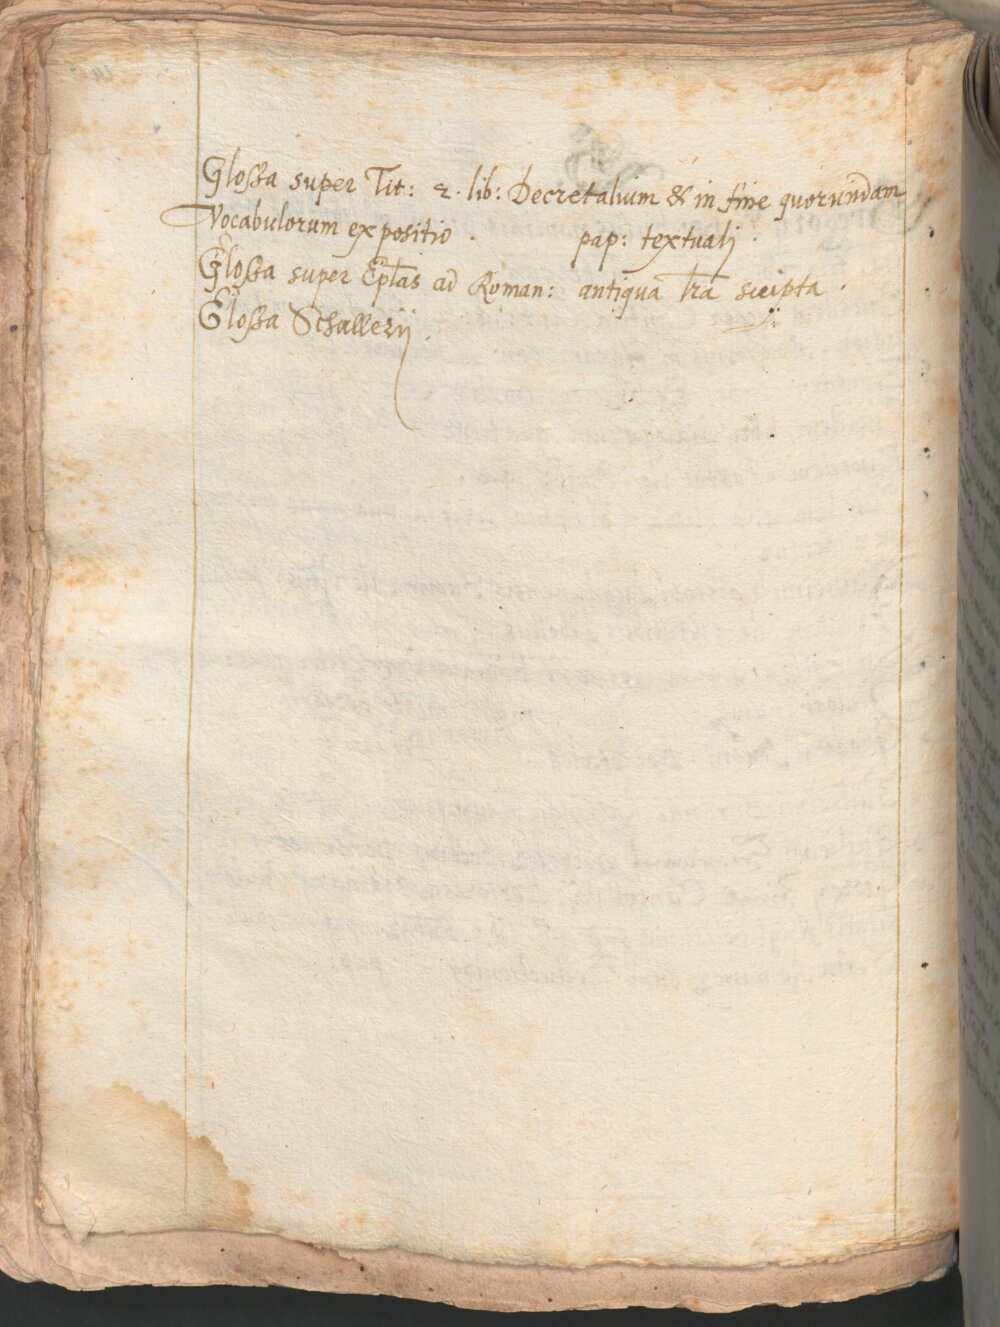 Glossa super Tit: 2. lib: Decretalium & in fine quorundam
Vocabulorum expositio . pap: textualj .
Glossa super Eplas ad Roman: antiqua lra scripta .
Glossa Schallerij .